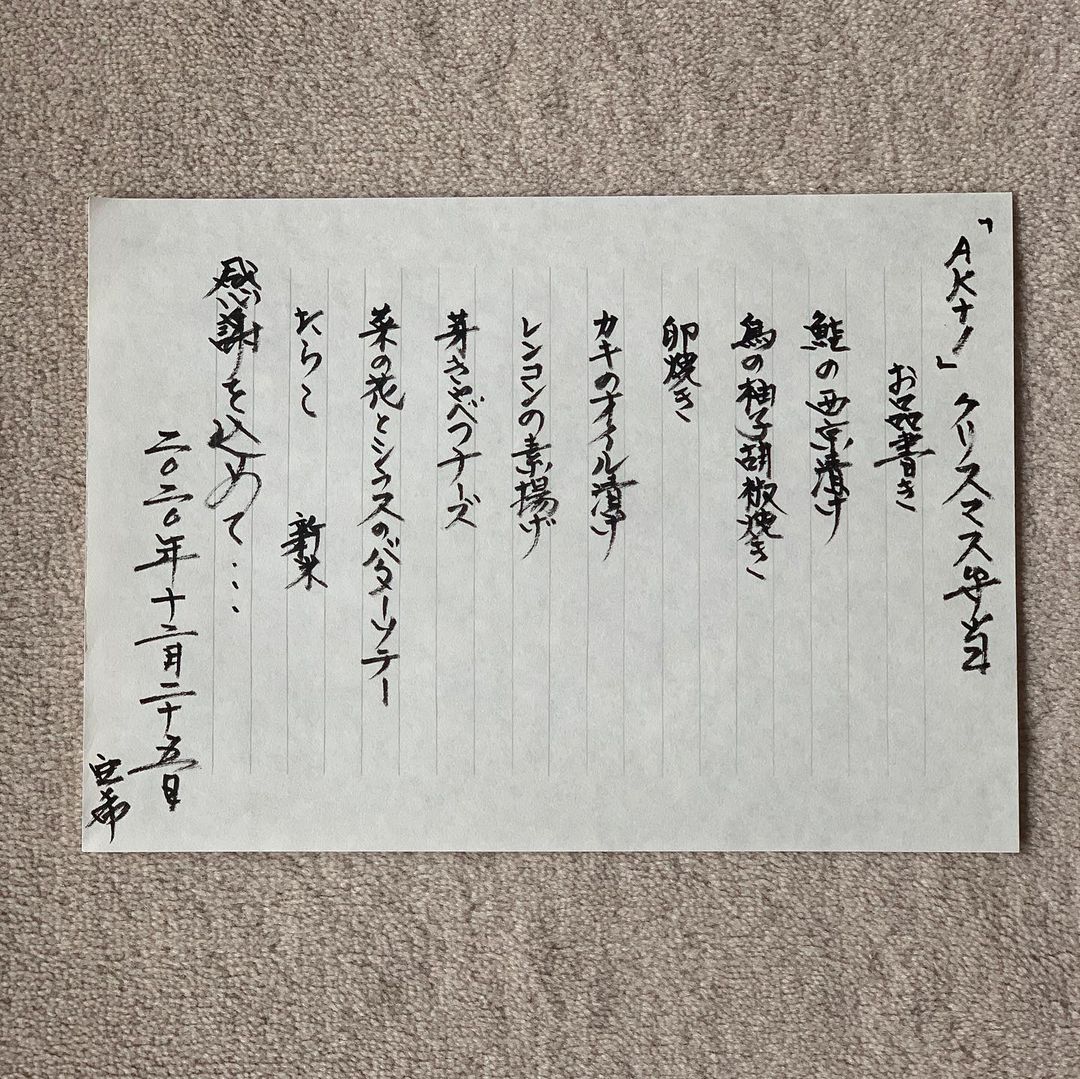 「AKナノ」クリスマス弁当
お品書き
鮭の西京漬け
鳥の柚子胡椒焼き
卵焼き
カキのオイル漬け
レンコンの素揚げ
芽きゃべつチーズ
菜の花とシラスのバターソテー
たらこ 新米
感謝を込めて・・・・
二〇二〇年十二月二十五日